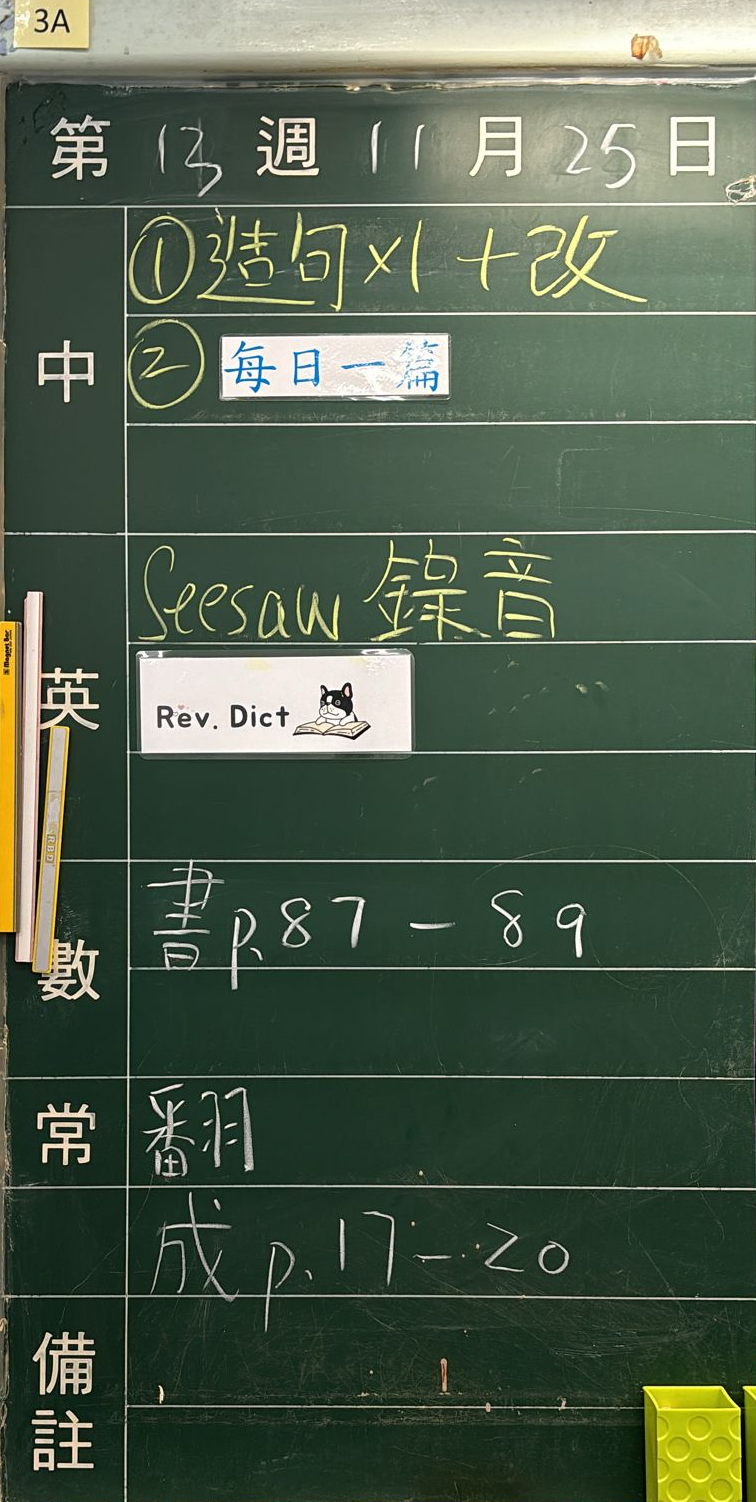 3A
第 13 週 11 月 25 日
中
①造句×1+改
② 每日一篇
英
Seesaw 錄音
Rev. Dict
數
書p.87-89
常
翻
成p.17-20
備註